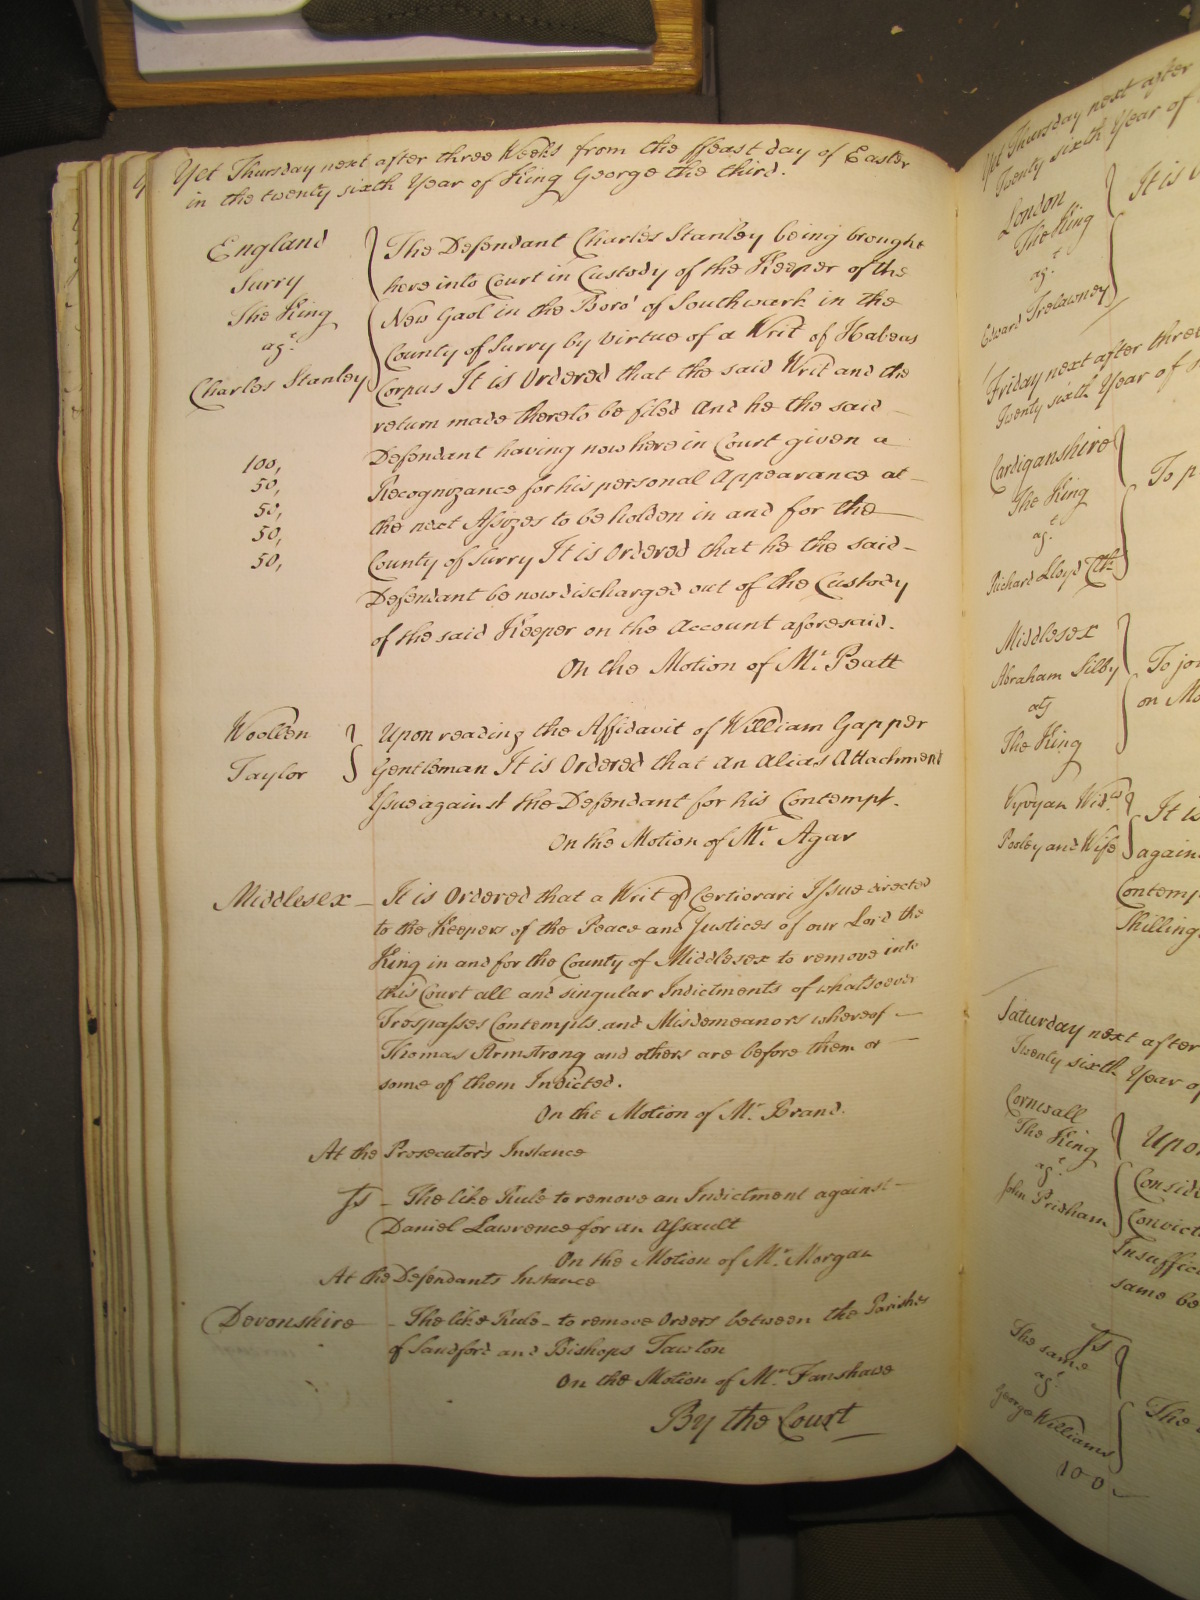 Yet Thursday next after three Weeks from the ffeast day of Easter
in the twenty sixth Year of King George the third.
England
Surry
The King
agt.
Charles Stanley
The Defendant Charles Stanley being brought
here into Court in Custody of the Keeper of the
New Gaol in the Boro' of Southwark in the
County of Surry by virtue of a Writ of Habeas
Corpus It is Ordered that the said Writ and the
return made thereto be filed And he the said
Defendant having now here in Court given a
Recognizance for his personal Appearance at
the next Assizes to be holden in and for the
County of Surry It is Ordered that he the said
Defendant be now discharged out of the Custody
of the said Keeper on the Account aforesaid.
100,
50,
50,
50,
50,
On the Motion of Mr. Peatt
Woollen
Taylor
Upon reading the Affidavit of William Gapper
Gentleman It is Ordered that an Alias Attachment
Issue against the Defendant for his Contempt.
On the Motion of Mr. Agar
Middlesex – It is Ordered that a Writ of Certiorari Issue directed
to the Keepers of the Peace and Justices of our Lord the
King in and for the County of Middlesex to remove into
this Court all and singular Indictments of whatsoever
Trespasses Contempts and Misdemeanors whereof
Thomas Armstrong and others are before them or
some of them Indicted.
On the Motion of Mr. Brand.
At the Prosecutors Instance
Js – The like Rule to remove an Indictment against
Daniel Lawrence for an Assault
On the Motion of Mr. Morgan
At the Defendants Instance
Devonshire – The like Rule – to remove Orders between the Parishes
of Sandford and Bishops Tawton
On the Motion of Mr. Fanshawe
By the Court
Yet Thursday next after
Twenty sixth Year of
London
The King
agt.
Edward Trelawney
It is
Friday next after three
Twenty sixth Year of
Cardiganshire
The King
agt.
Richard Lloyd Clk
To p
Middlesex
Abraham Silby
ats
The King
To jo
on Mo
Vyvyan Widw.
Pooley and Wife
It is
again
Contemp
Shilling
Saturday next after
Twenty sixth Year of
Cornwall
The King
agt.
John Pridham
Upon
Consid
Convict
Insuffic
same be
Js
The same
agt.
George Williams
100
The